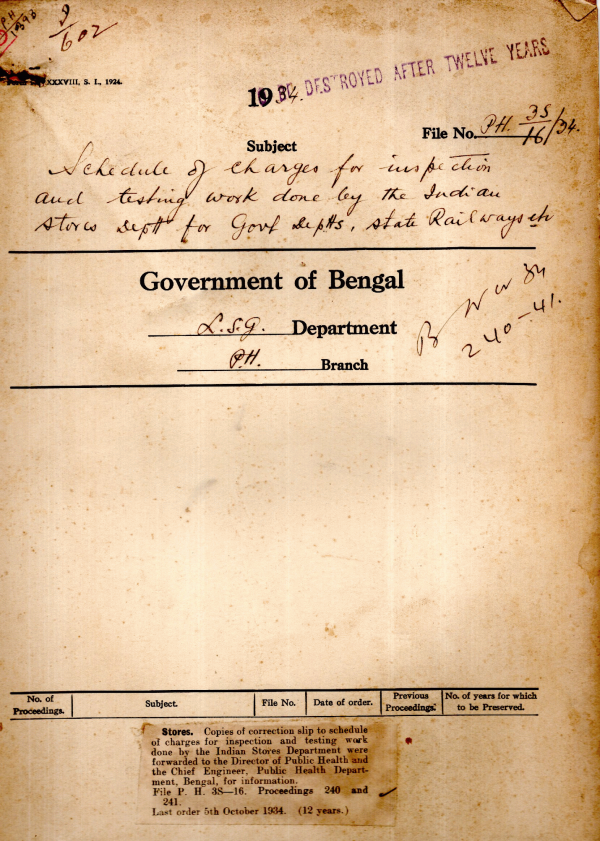 P.H
1393
602
XXXVIII, S. I., 1924.
TO BE DESTROYED AFTER TWELVE YEARS
1934.
File No. P.H. 3S/16/34.
Subject
Schedule of charges for inspection
and testing work done by the Indian
Stores Deptt for Govt Deptts, State Railways etc
Government of Bengal
L.S.G. Department
P.H. Branch
240-41.
No. of Proceedings. Subject. File No. Date of order. Previous Proceedings. No. of years for which to be Preserved.
Stores. Copies of correction slip to schedule
of charges for inspection and testing work
done by the Indian Stores Department were
forwarded to the Director of Public Health and
the Chief Engineer, Public Health Depart-
ment, Bengal, for information.
File P. H. 3S—16. Proceedings 240 and
241.
Last order 5th October 1934. (12 years.)